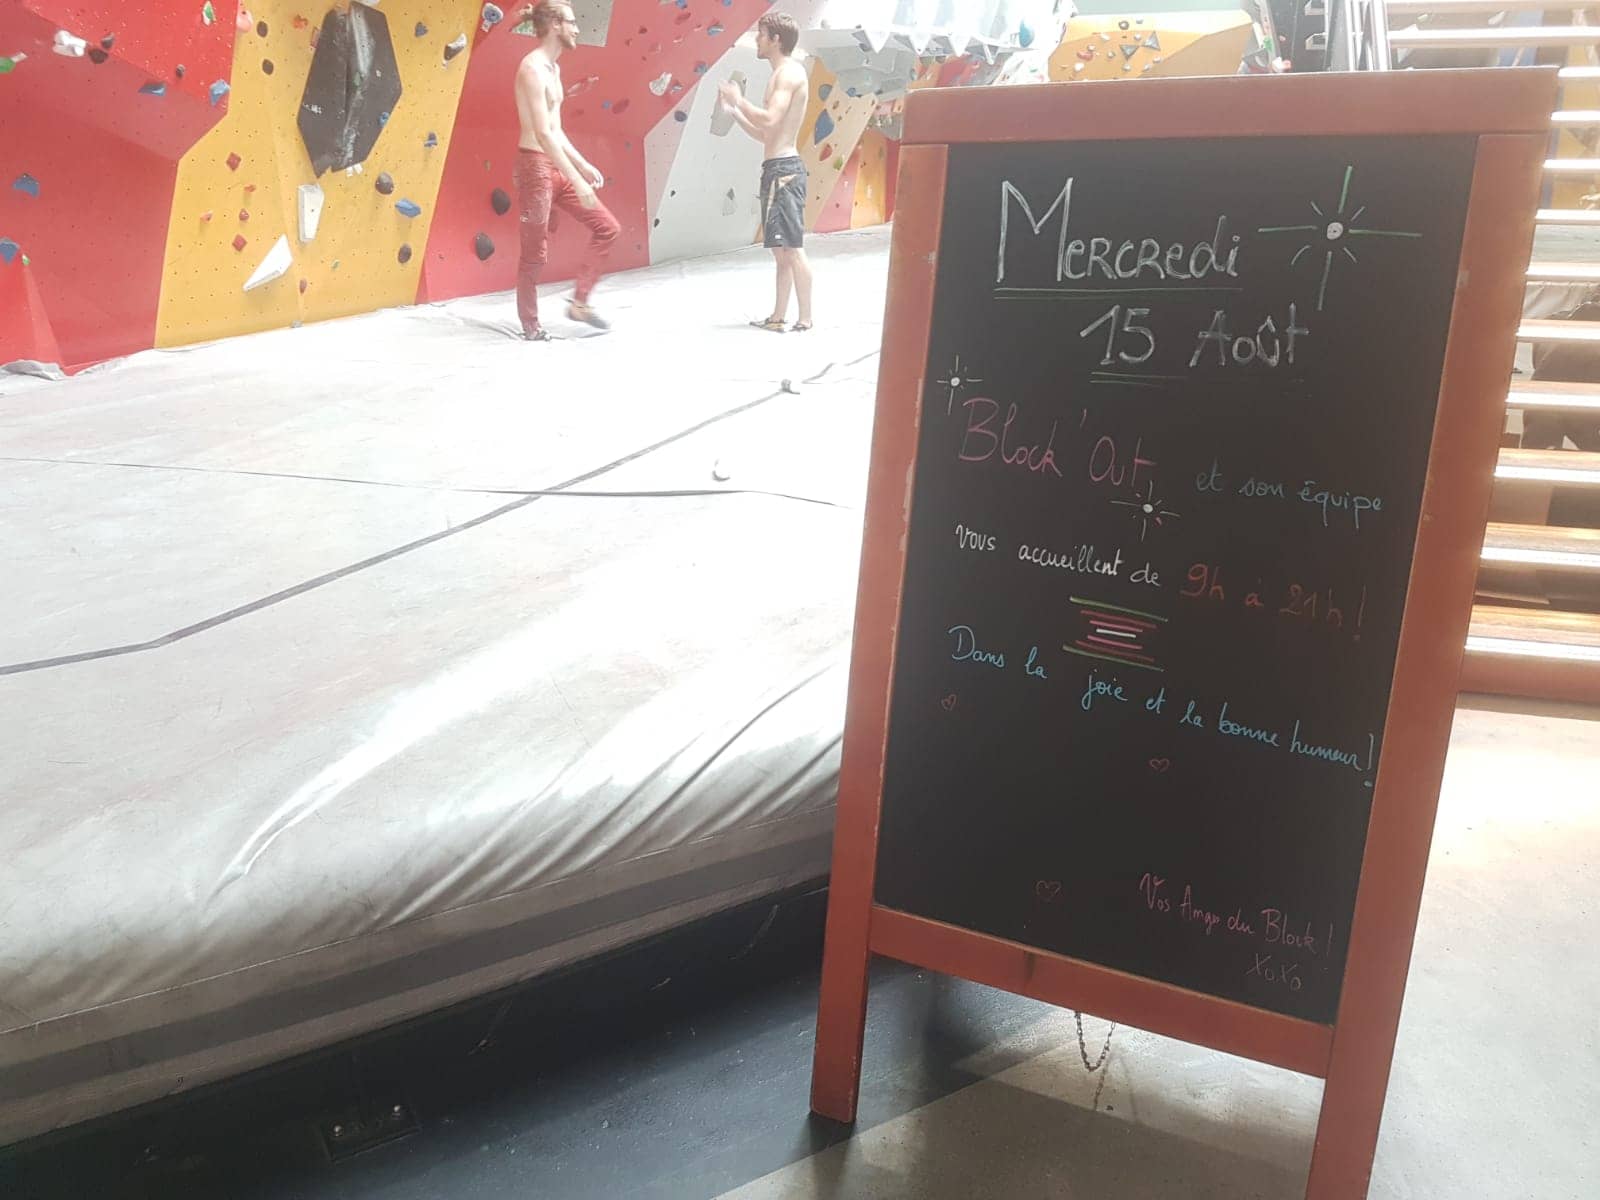 Mercredi
15 Août
Block'Out et son équipe
vous accueillent de 9h à 21h!
Dans la joie et la bonne humeur!
Vos Anges du Block!
XoXo